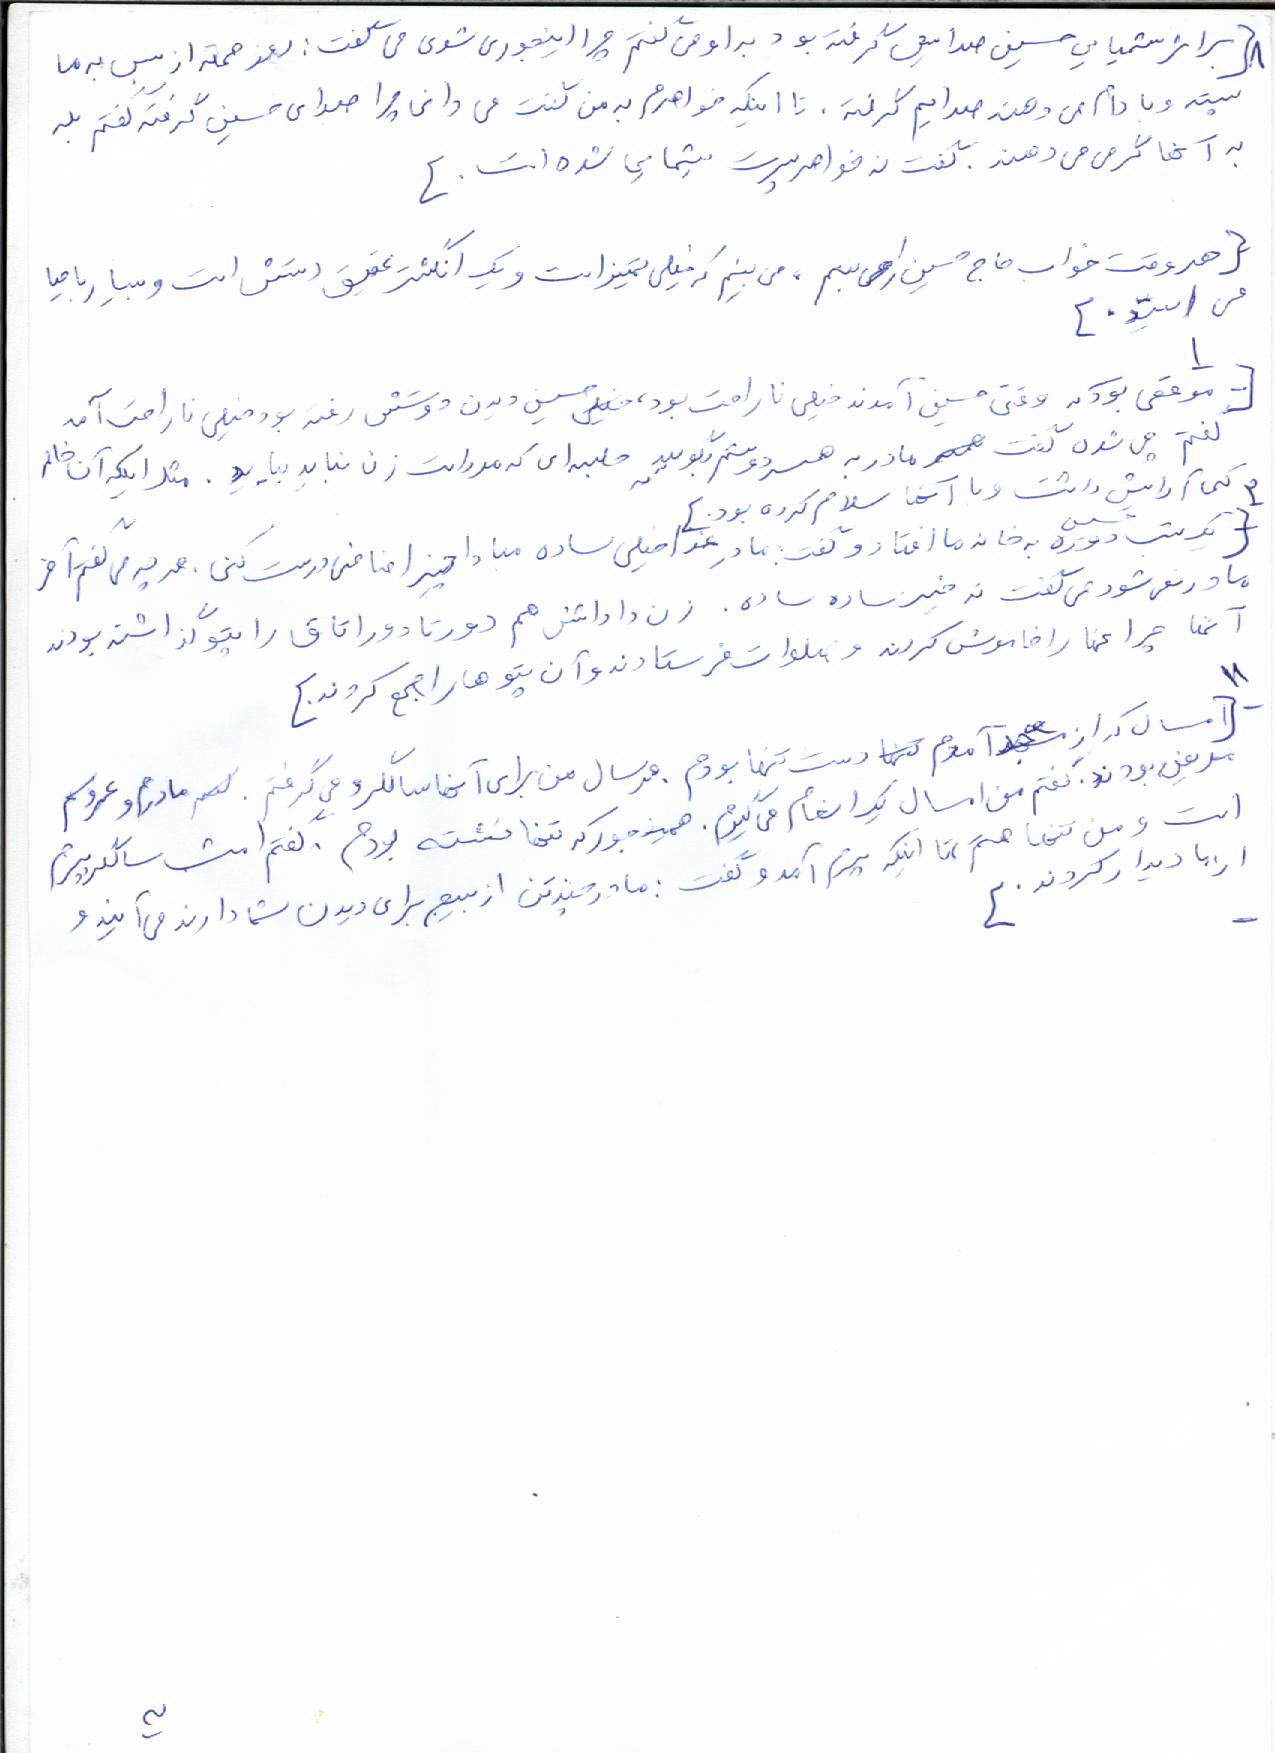 ۸{ بر اثر شیمیایی حسین صدایش گرفته بود به او می گفتم چرا اینجوری شدی می گفت: از بس به ما
پسته و بادام می دهند صدایم گرفته. تا اینکه خواهرم به من گفت می دانی چرا صدای حسین گرفته گفتم بله
به آنها گرمی می دهند. گفت نه خواهر پسرت شیمیایی شده است. }
{ هر وقت خواب حاج حسین را می بینم، می بینم که خیلی تمیز است و یک انگشتر عقیق دستش است و بسیار با حیا
می ایستد. }
۱
[- موقعی بود که وقتی حسین آمدند خیلی ناراحت بود، حسین دیدن دوستش رفته بود خیلی ناراحت آمد
گفتم چی شده گفت مادر به همسر دوستم بگویید جلسه ای که مرد است زن نباید بیاید. مثل اینکه آن خانم
کمی آرایش داشت و با آنها سلام کرده بود. }
۲
{ یک شب دوره حسین به خانه ما افتاد و گفت: مادر غذا خیلی ساده مبادا چیز اضافی درست کنی. هر چه می گفتم آخر
مادر نمی شود می گفت نه خیر ساده ساده. زن داداشش هم دور تا دور اتاق را پتو گذاشته بودند
آنها چراغها را خاموش کردند و صلوات فرستادند و آن پتوها را جمع کردند. }
۱۱
-{ امسال که از آمدم دست تنها بودم. هر سال من برای آنها سالگرد می گرفتم. مادرم و عروسم
مریض بودند. گفتم من امسال یک می گیرم. همینجور که تنها نشسته بودم. گفتم امشب سالگرد پسرم
است و من تنها هستم تا اینکه پسرم آمد و گفت: مادر چند تن از بسیج برای دیدن شما دارند می آیند و
از ما دیدار کردند. }
-